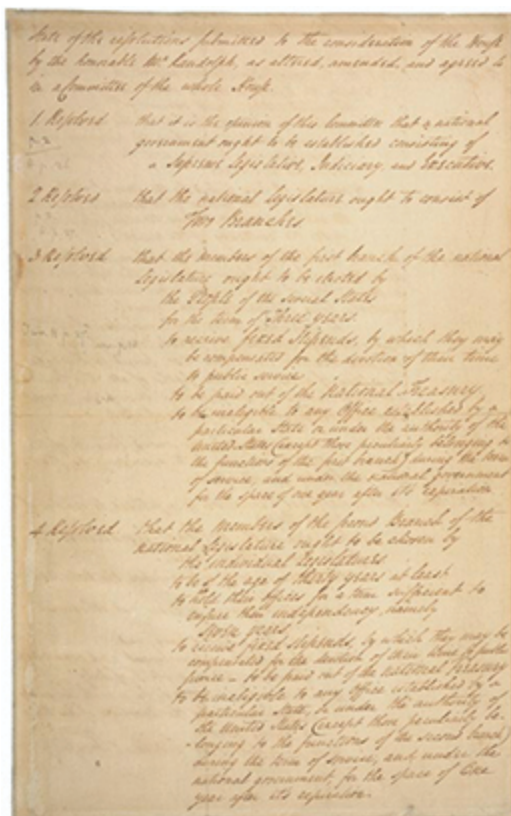 State of the resolutions submitted to the consideration of the House
by the honorable Mr. Randolph, as altered, amended, and agreed to
in a Committee of the whole House.
1 Resolved that it is the opinion of this Committee that a national
government ought to be established consisting of
a Supreme Legislative, Judiciary, and Executive.
2 Resolved that the national Legislature ought to consist of
Two Branches
3 Resolved that the members of the first branch of the national
Legislature ought to be elected by
the People of the several States
for the term of Three years.
to receive fixed Stipends, by which they may
be compensated for the devotion of their time
to public service
to be paid out of the National Treasury.
to be ineligible to any Office established by a
particular State or under the authority of the
United States (except those peculiarly belonging to
the functions of the first branch) during the term
of service, and under the national government
for the space of one year after its expiration
4 Resolved that the members of the second Branch of the
national Legislature ought to be chosen by
the individual Legislatures.
to be of the age of thirty years at least.
to hold their offices for a term sufficient to
ensure their independency, namely
seven years.
to receive fixed Stipends, by which they may be
compensated for the devotion of their time to public
service - to be paid out of the National Treasury
to be ineligible to any Office established by a
particular State, or under the authority of
the United States (except those peculiarly be-
longing to the functions of the second branch)
during the term of service, and under the
national government, for the space of One
year after its expiration.